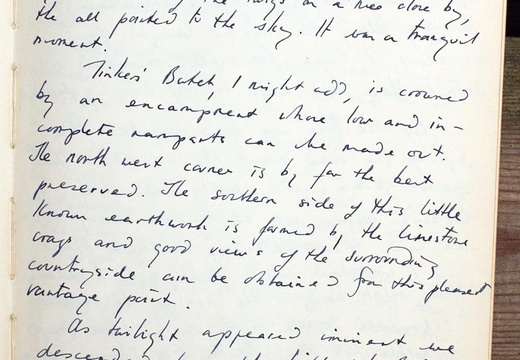 the twigs on a tree close by,
the all pointed to the sky. It was a tranquil
moment.
Tinkers' Batch, I might add, is crowned
by an encampment whose low and in-
complete ramparts can be made out.
The north west corner is by far the best
preserved. The southern side of this little
known earthwork is formed by the limestone
crags and good views of the surrounding
countryside can be obtained from this pleasant
vantage point.
As twilight appeared iminent we
descended